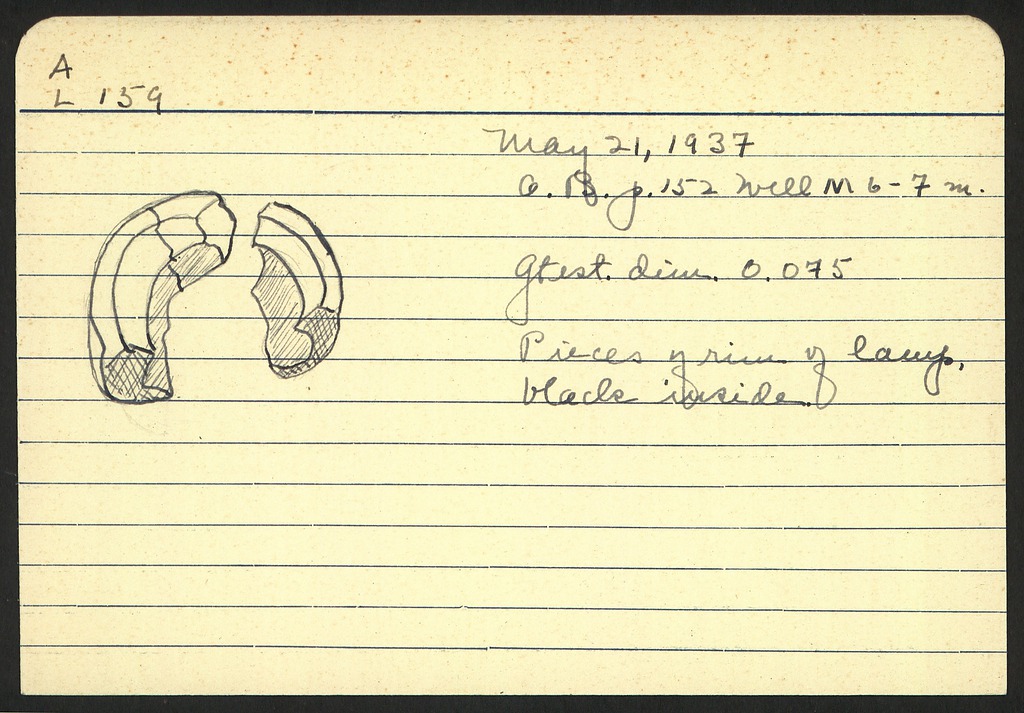 A
L 159
May 21, 1937
p. 152 Well M 6-7 m.
Gtest. dim. 0.075
Pieces of rim of lamp,
black inside.